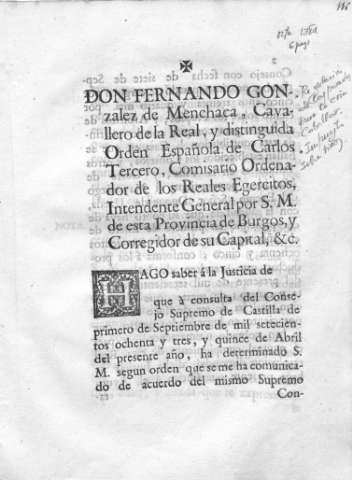 116
6 pag
✠
DON FERNANDO GON-
zalez de Menchaca, Cava-
llero de la Real, y distinguida
Orden Española de Carlos
Tercero, Comisario Ordena-
dor de los Reales Egercitos,
Intendente General por S. M.
de esta Provincia de Burgos, y
Corregidor de su Capital, &c.
HAGO saber á la Justicia de
que à consulta del Conse-
jo Supremo de Castilla de
primero de Septiembre de mil setecien-
tos ochenta y tres, y quince de Abril
del presente año, ha determinado S.
M. segun orden que se me ha comunica-
do de acuerdo del mismo Supremo
Con-